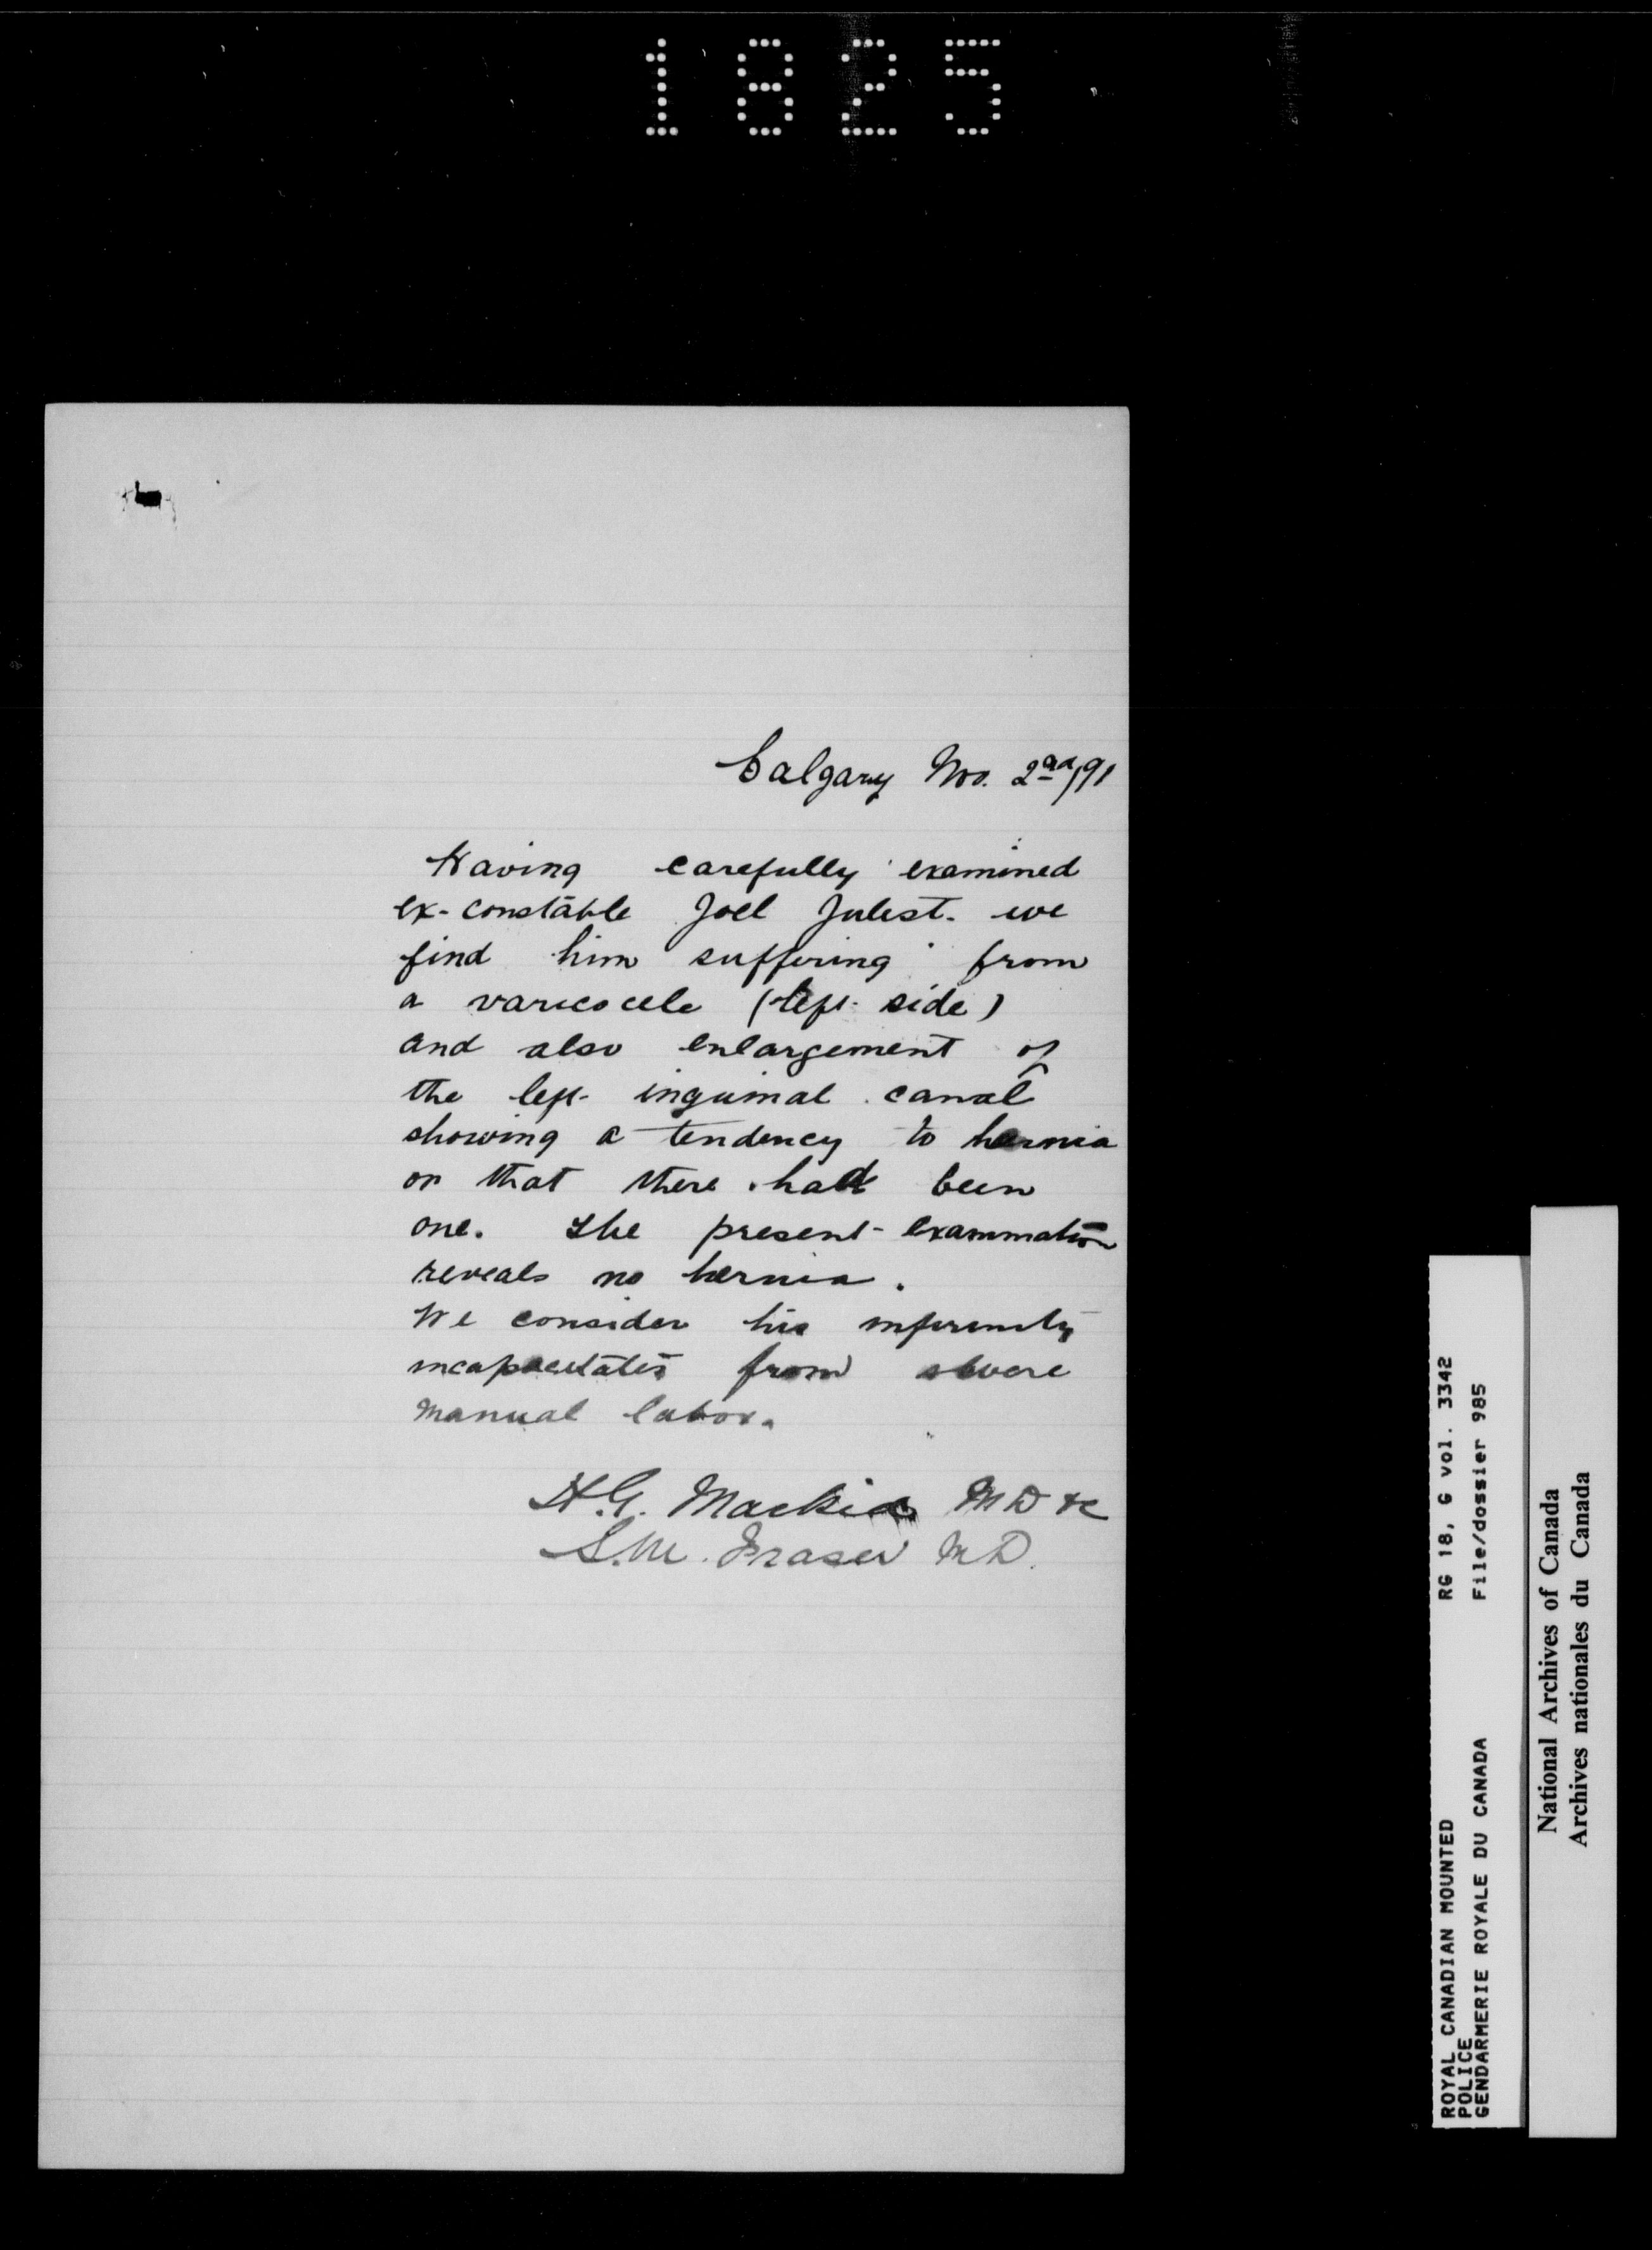 1825
Calgary Nov. 2nd/91
Having carefully examined
ex-constable Joel Julest. we
find him suffering from
a varicocele (left side)
and also enlargement of
the left inguinal canal
showing a tendency to hernia
or that there had been
one. The present examination
reveals no hernia.
We consider his infirmity
incapacitates from severe
manual labor.
H.G. Mackid MD &c
S.M. Fraser MD.
ROYAL CANADIAN MOUNTED RG 18, G vol. 3342
POLICE
GENDARMERIE ROYALE DU CANADA File/dossier 985
National Archives of Canada
Archives nationales du Canada